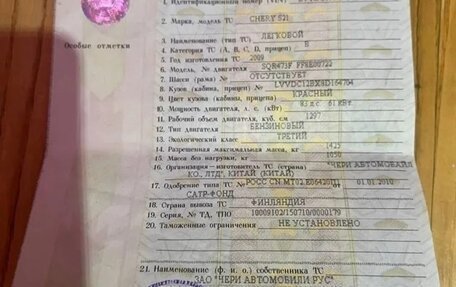 1. Идентификационный номер (VIN)
2. Марка, модель ТС CHERY S21
Особые отметки
3. Наименование (тип ТС) ЛЕГКОВОЙ
4. Категория ТС (A, B, C, D, прицеп) B
5. Год изготовления ТС 2009
6. Модель, № двигателя SQR473F FF9E00722
7. Шасси (рама) № ОТСУТСТВУЕТ
8. Кузов (кабина, прицеп) № LVVDC12BX9D164704
9. Цвет кузова (кабины, прицепа) КРАСНЫЙ
10. Мощность двигателя, л. с. (кВт) 83лс 61кВт
11. Рабочий объем двигателя, куб. см 1297
12. Тип двигателя БЕНЗИНОВЫЙ
13. Экологический класс ТРЕТИЙ
14. Разрешенная максимальная масса, кг 1425
15. Масса без нагрузки, кг 1050
16. Организация—изготовитель ТС (страна) "ЧЕРИ АВТОМОБАЙЛ
КО., ЛТД", КИТАЙ (КИТАЙ)
17. Одобрение типа ТС № РОСС CN.МТ02.Е06420П1 от 01.01.2010
САТР-ФОНД
18. Страна вывоза ТС ФИНЛЯНДИЯ
19. Серия, № ТД, ТПО 10009102/150710/0000179
20. Таможенные ограничения НЕ УСТАНОВЛЕНО
21. Наименование (ф. и. о.) собственника ТС
ЗАО "ЧЕРИ АВТОМОБИЛИ РУС"